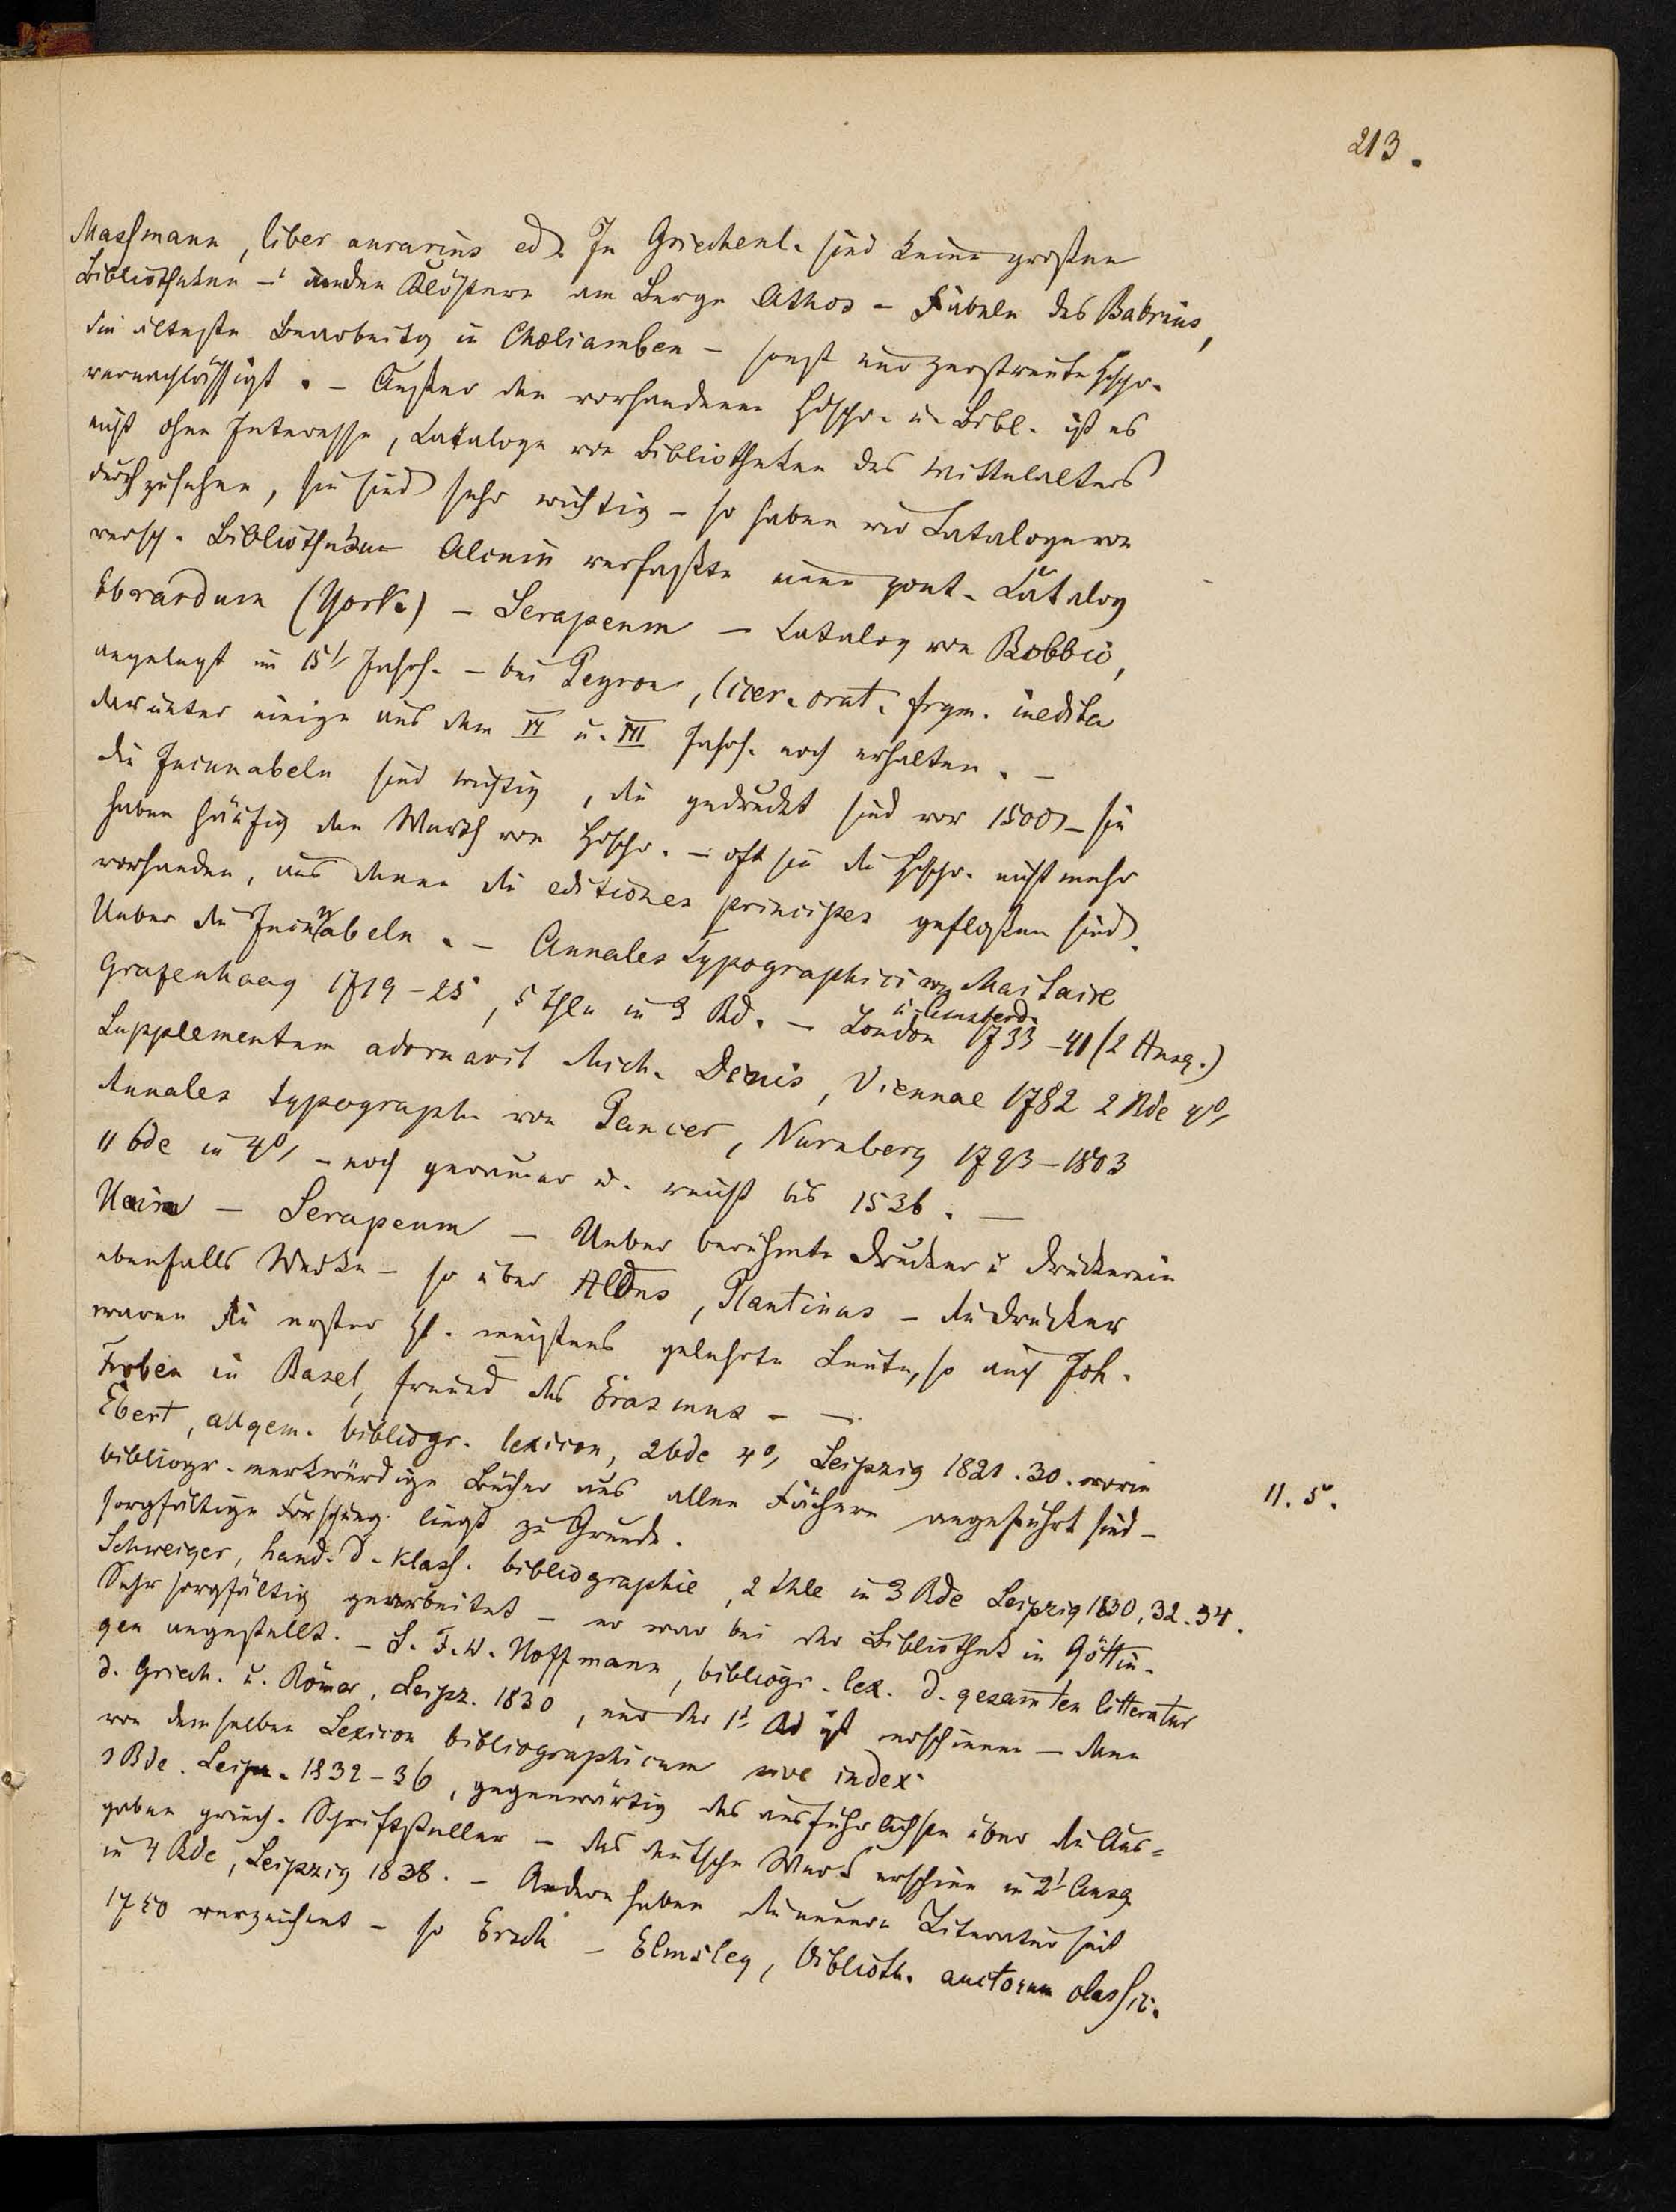 213.
Massmann, liber aurarius ed. In Griechenl. sind keine großen
Bibliotheken – in den Klöstern am Berge Athos – Fabeln des Babrius,
die älteste Bearbeitg in Choliamben – sonst nur zerstreute Hdschr.
vernachlässigt. – Außer den vorhandenen Hdschr. u. Bibl. ist es
nicht ohne Interesse, Kataloge von Bibliotheken des Mittelalters
durchzusehen, sie sind sehr wichtig – so haben wir Cataloge von
versch. Bibliotheken Alcuin verfaßte einen poet. Catalog
Ebrardum (York.) – Serapeum – Catalog von Bobbio,
angelegt im 15t Jahrh. – bei Peyron, Cicer. orat. frgm. inedita
darunter einige aus dem VI u. VII Jahrh. noch erhalten. –
Die Incunabeln sind wichtig, die gedruckt sind vor 1500 – sie
haben häufig den Werth von Hdschr. – oft sie die Hdschr. nicht mehr
vorhanden, aus denen die editiones principes geflossen sind.
Ueber die Incunabeln. – Annales typographici von Maitaire
Grafenhaag 1719–25, 5 Thle in 3 Bd. – London u. Amsterd. 1733–41 (2 Ausg.)
Supplementum adornavit Mich. Denis, Viennae 1782 2 Bde 4o,
Annales typograph. von Panzer, Nürnberg 1793–1803
11 bde in 4o, – noch genauer u. reicht bis 1536. –
Hain – Serapeum – Ueber berühmte Drucker u Druckerein
ebenfalls Werke – so über Aldus, Plantinus – die Drucker
waren die erster Zt. meistens gelehrte Leute, so auch Joh.
Froben in Basel, Freund des Erasmus – –
Ebert, allgem. bibliogr. lexicon, 2bde 4o, Leipzig 1821. 30. worin
bibliogr. merkwürdige Bücher aus allen Fächern angeführt sind –
11. 5.
sorgfältige Forschung liegt zu Grunde.
Schweiger, hand. d. klass. bibliographie, 2 thle in 3 Bde Leipzig 1830, 32. 34.
Sehr sorgfältig gearbeitet – er war bei der Bibliothek in Göttin-
gen angestellt. – S. F. W. Hoffmann, bibliogr. lex. d. gesamten litteratur
d. Griech. u. Römer, Leipz. 1830, nur der 1t Bd ist erschienen – dann
von demselben Lexicon bibliographicum sive index
3 Bde. Leipz. 1832–36, gegenwärtig das ausführlichste über die Aus=
gaben griech. Schriftsteller – das deutsche Werk erschien in 2t Ausg.
in 4 Bde, Leipzig 1838. – Andere haben die neuere Literatur seit
1750 verzeichnet – so Ersch – Elmsley, Biblioth. auctorum classic.